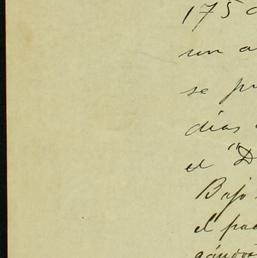 175
un a
se pr
días
el "D
Bajo
el pad